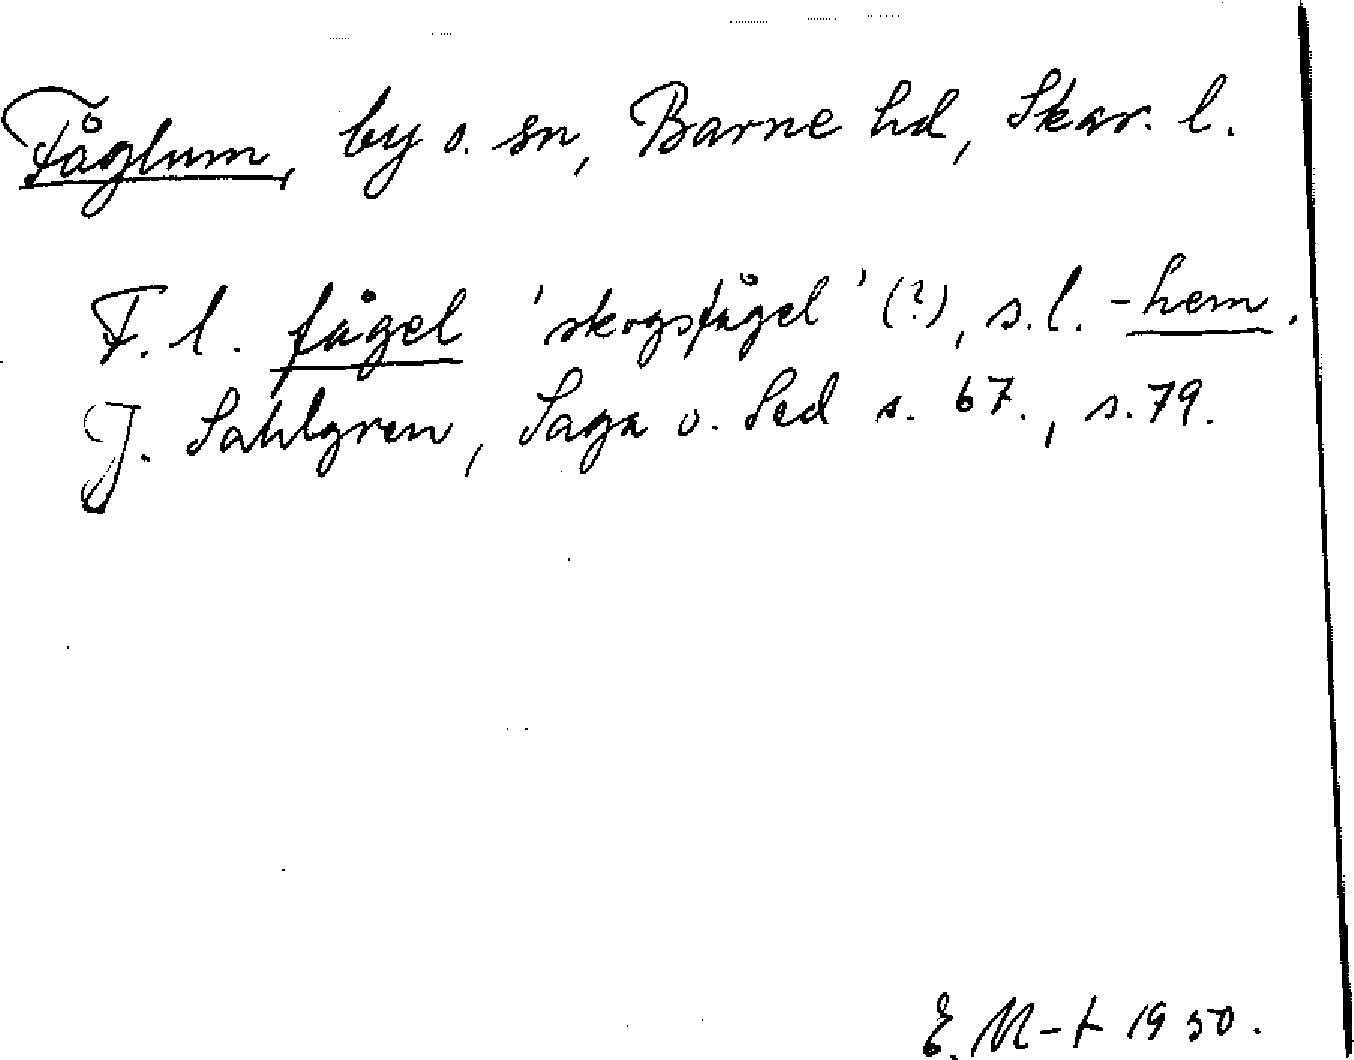 Fåglum, by o. sn, Barne hd, Skar. l.
F. l. fågel 'skogsfågel' (?), s. l. -hem.
J. Sahlgren, Saga o. Sed s. 67., s. 79.
E. M-t 1950.